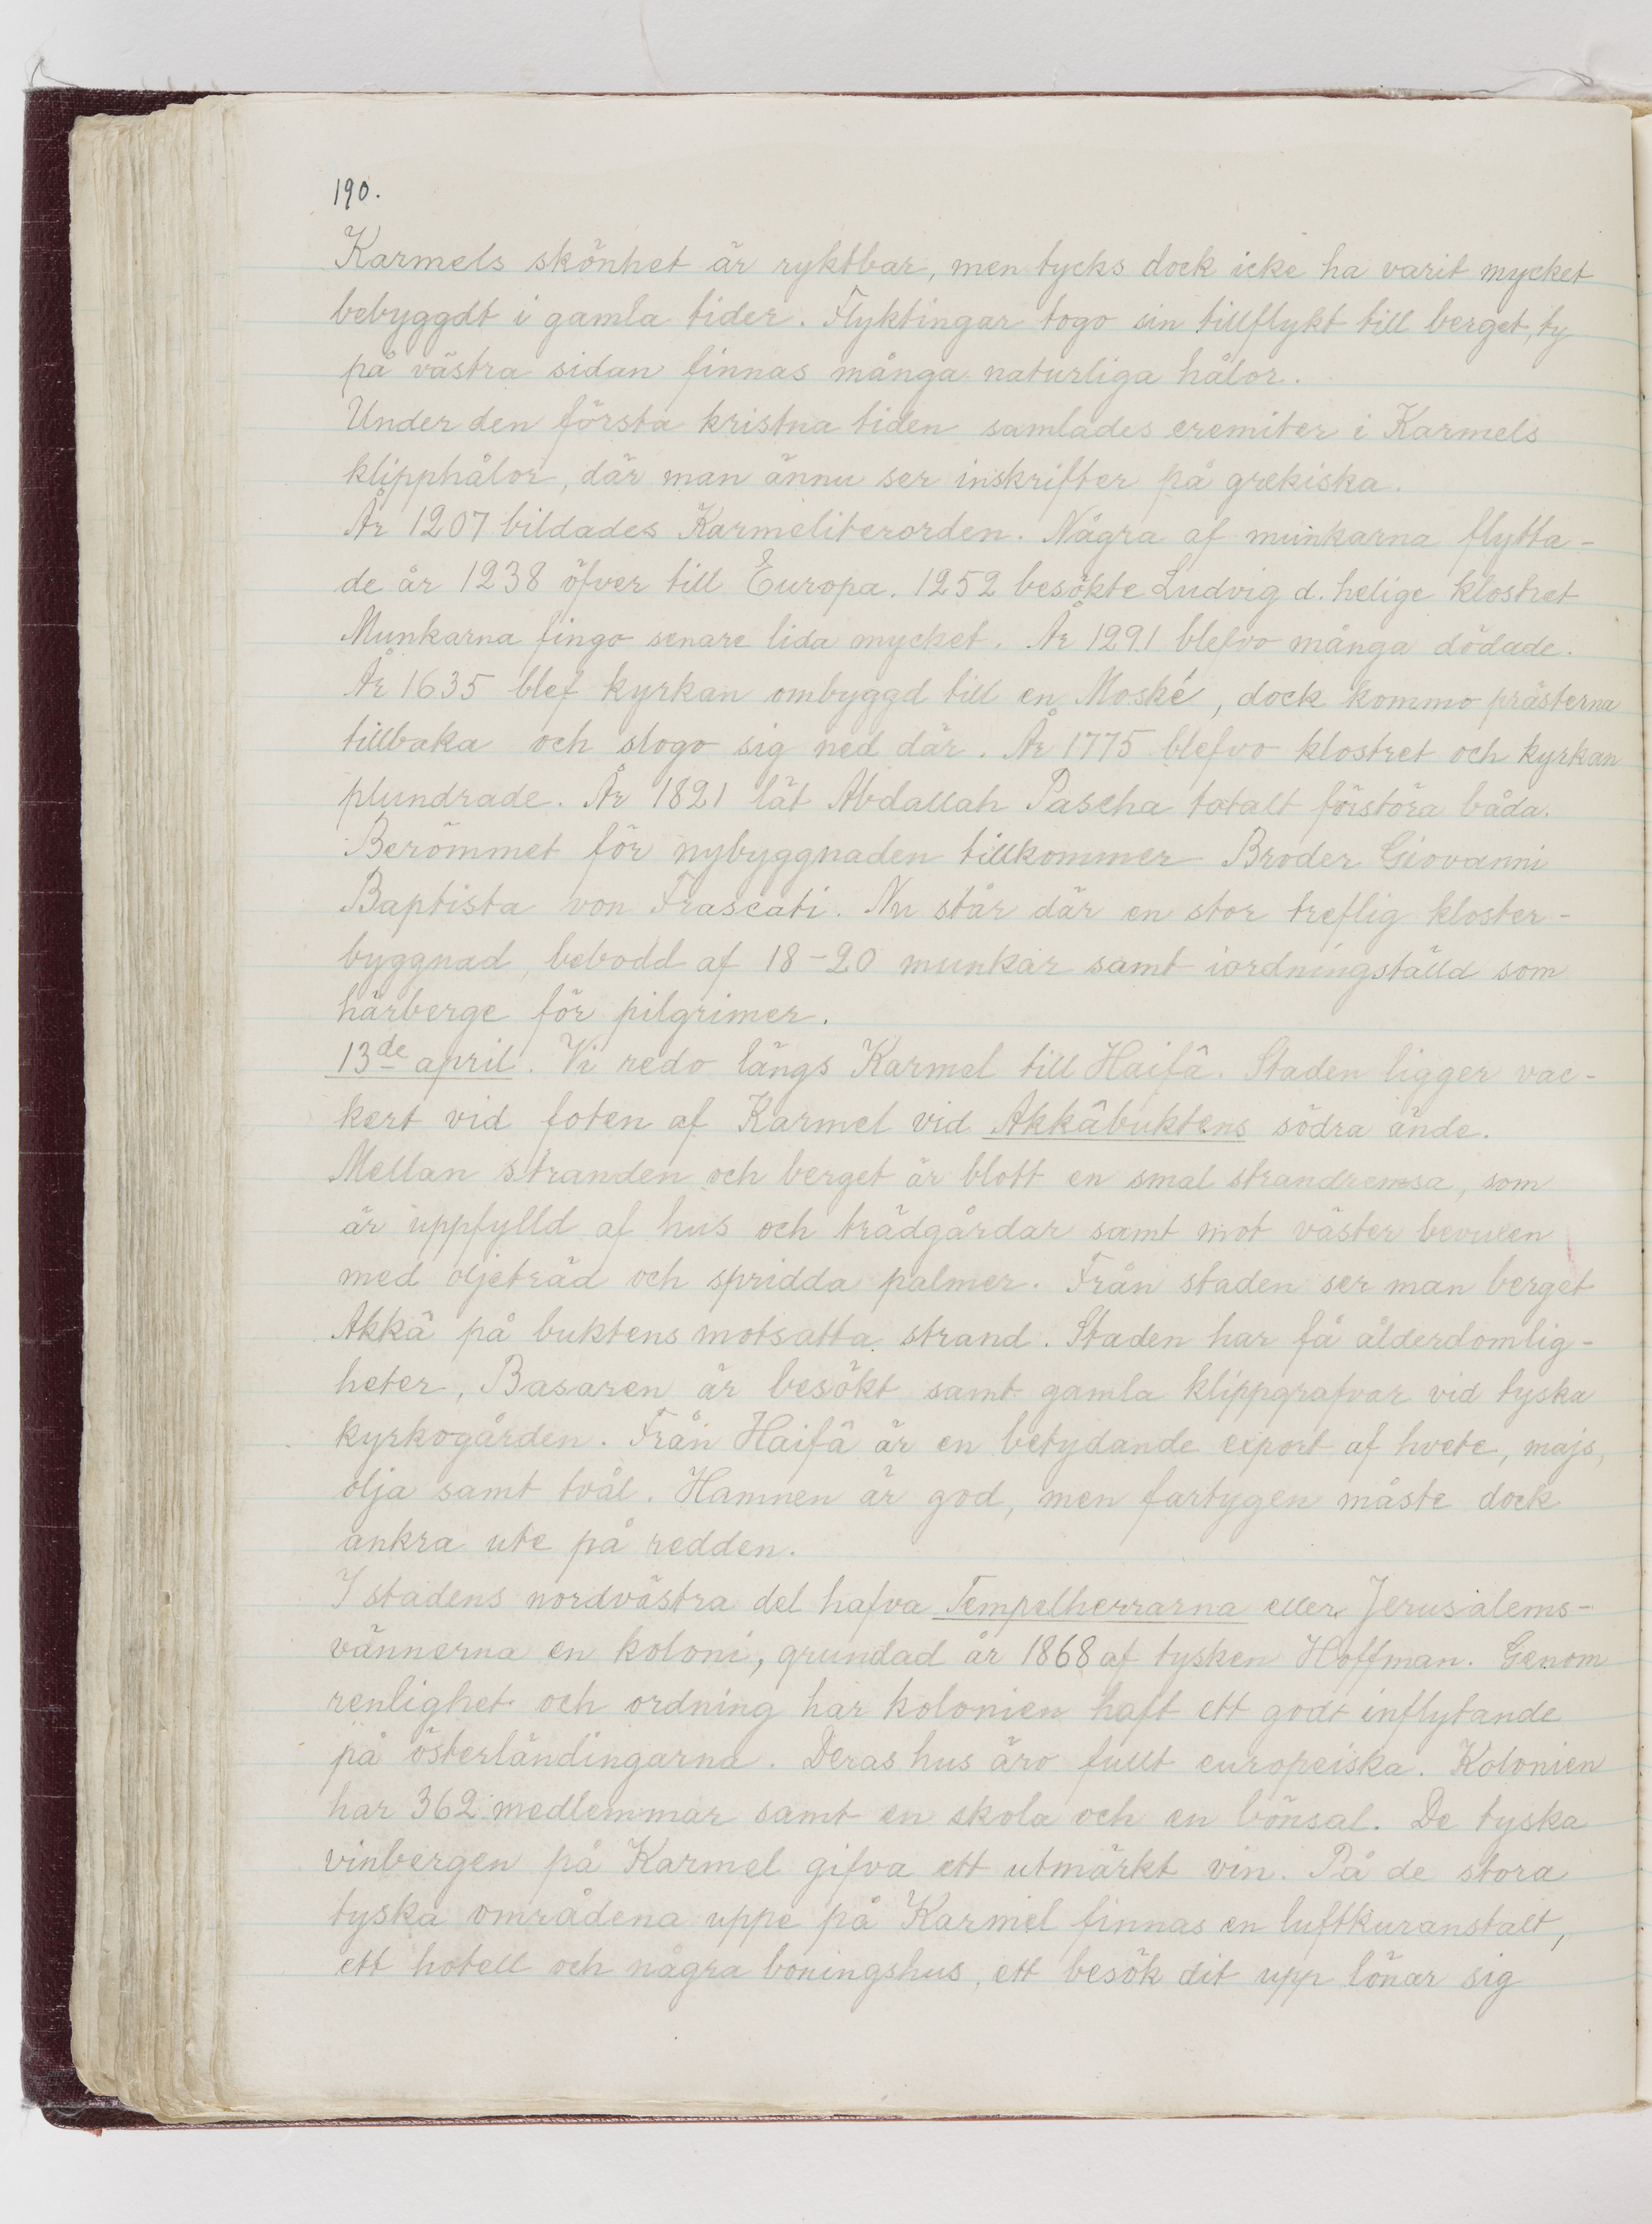 190.
Karmels skönhet är ryktbar, men tycks dock icke ha varit mycket
bebyggdt i gamla tider. Flyktingar togo sin tillflykt till berget, ty
på västra sidan finnas många naturliga hålor.
Under den första kristna tiden samlades eremiter i Karmels
klipphålor, där man ännu ser inskrifter på grekiska.
År 1207 bildades Karmeliterorden. Några af munkarna flytta-
de år 1238 öfver till Europa. 1252 besökte Ludvig d. helige klostret
Munkarna fingo senare lida mycket. År 1291 blefvo många dödade.
År 1635 blef kyrkan ombyggd till en Moské, dock kommo prästerna
tillbaka och slogo sig ned där. År 1775 blefvo klostret och kyrkan
plundrade. År 1821 lät Abdallah Pascha totalt förstöra båda.
Berömmet för nybyggnaden tillkommer Broder Giovanni
Baptista von Frascati. Nu står där en stor treflig kloster-
byggnad, bebodd af 18-20 munkar samt iordningställd som
härberge för pilgrimer.
13de april. Vi redo längs Karmel till Haifâ. Staden ligger vac-
kert vid foten af Karmel vid Akkâbuktens södra ände.
Mellan stranden och berget är blott en smal strandremsa, som
är uppfylld af hus och trädgårdar samt mot väster bevuxen
med oljeträd och spridda palmer. Från staden ser man berget
Akkâ på buktens motsatta strand. Staden har få ålderdomlig-
heter, Basaren är besökt samt gamla klippgrafvar vid tyska
kyrkogården. Från Haifâ är en betydande export af hvete, majs,
olja samt tvål. Hamnen är god, men fartygen måste dock
ankra ute på redden.
I stadens nordvästra del hafva Tempelherrarna eller Jerusalems-
vännerna en koloni, grundad år 1868 af tysken Hoffman. Genom
renlighet och ordning har kolonien haft ett godt inflytande
på österländingarna. Deras hus äro fullt europeiska. Kolonien
har 362 medlemmar samt en skola och en bönsal. De tyska
vinbergen på Karmel gifva ett utmärkt vin. På de stora
tyska områdena uppe på Karmel finnas en luftkuranstalt,
ett hotell och några boningshus, ett besök dit upp lönar sig